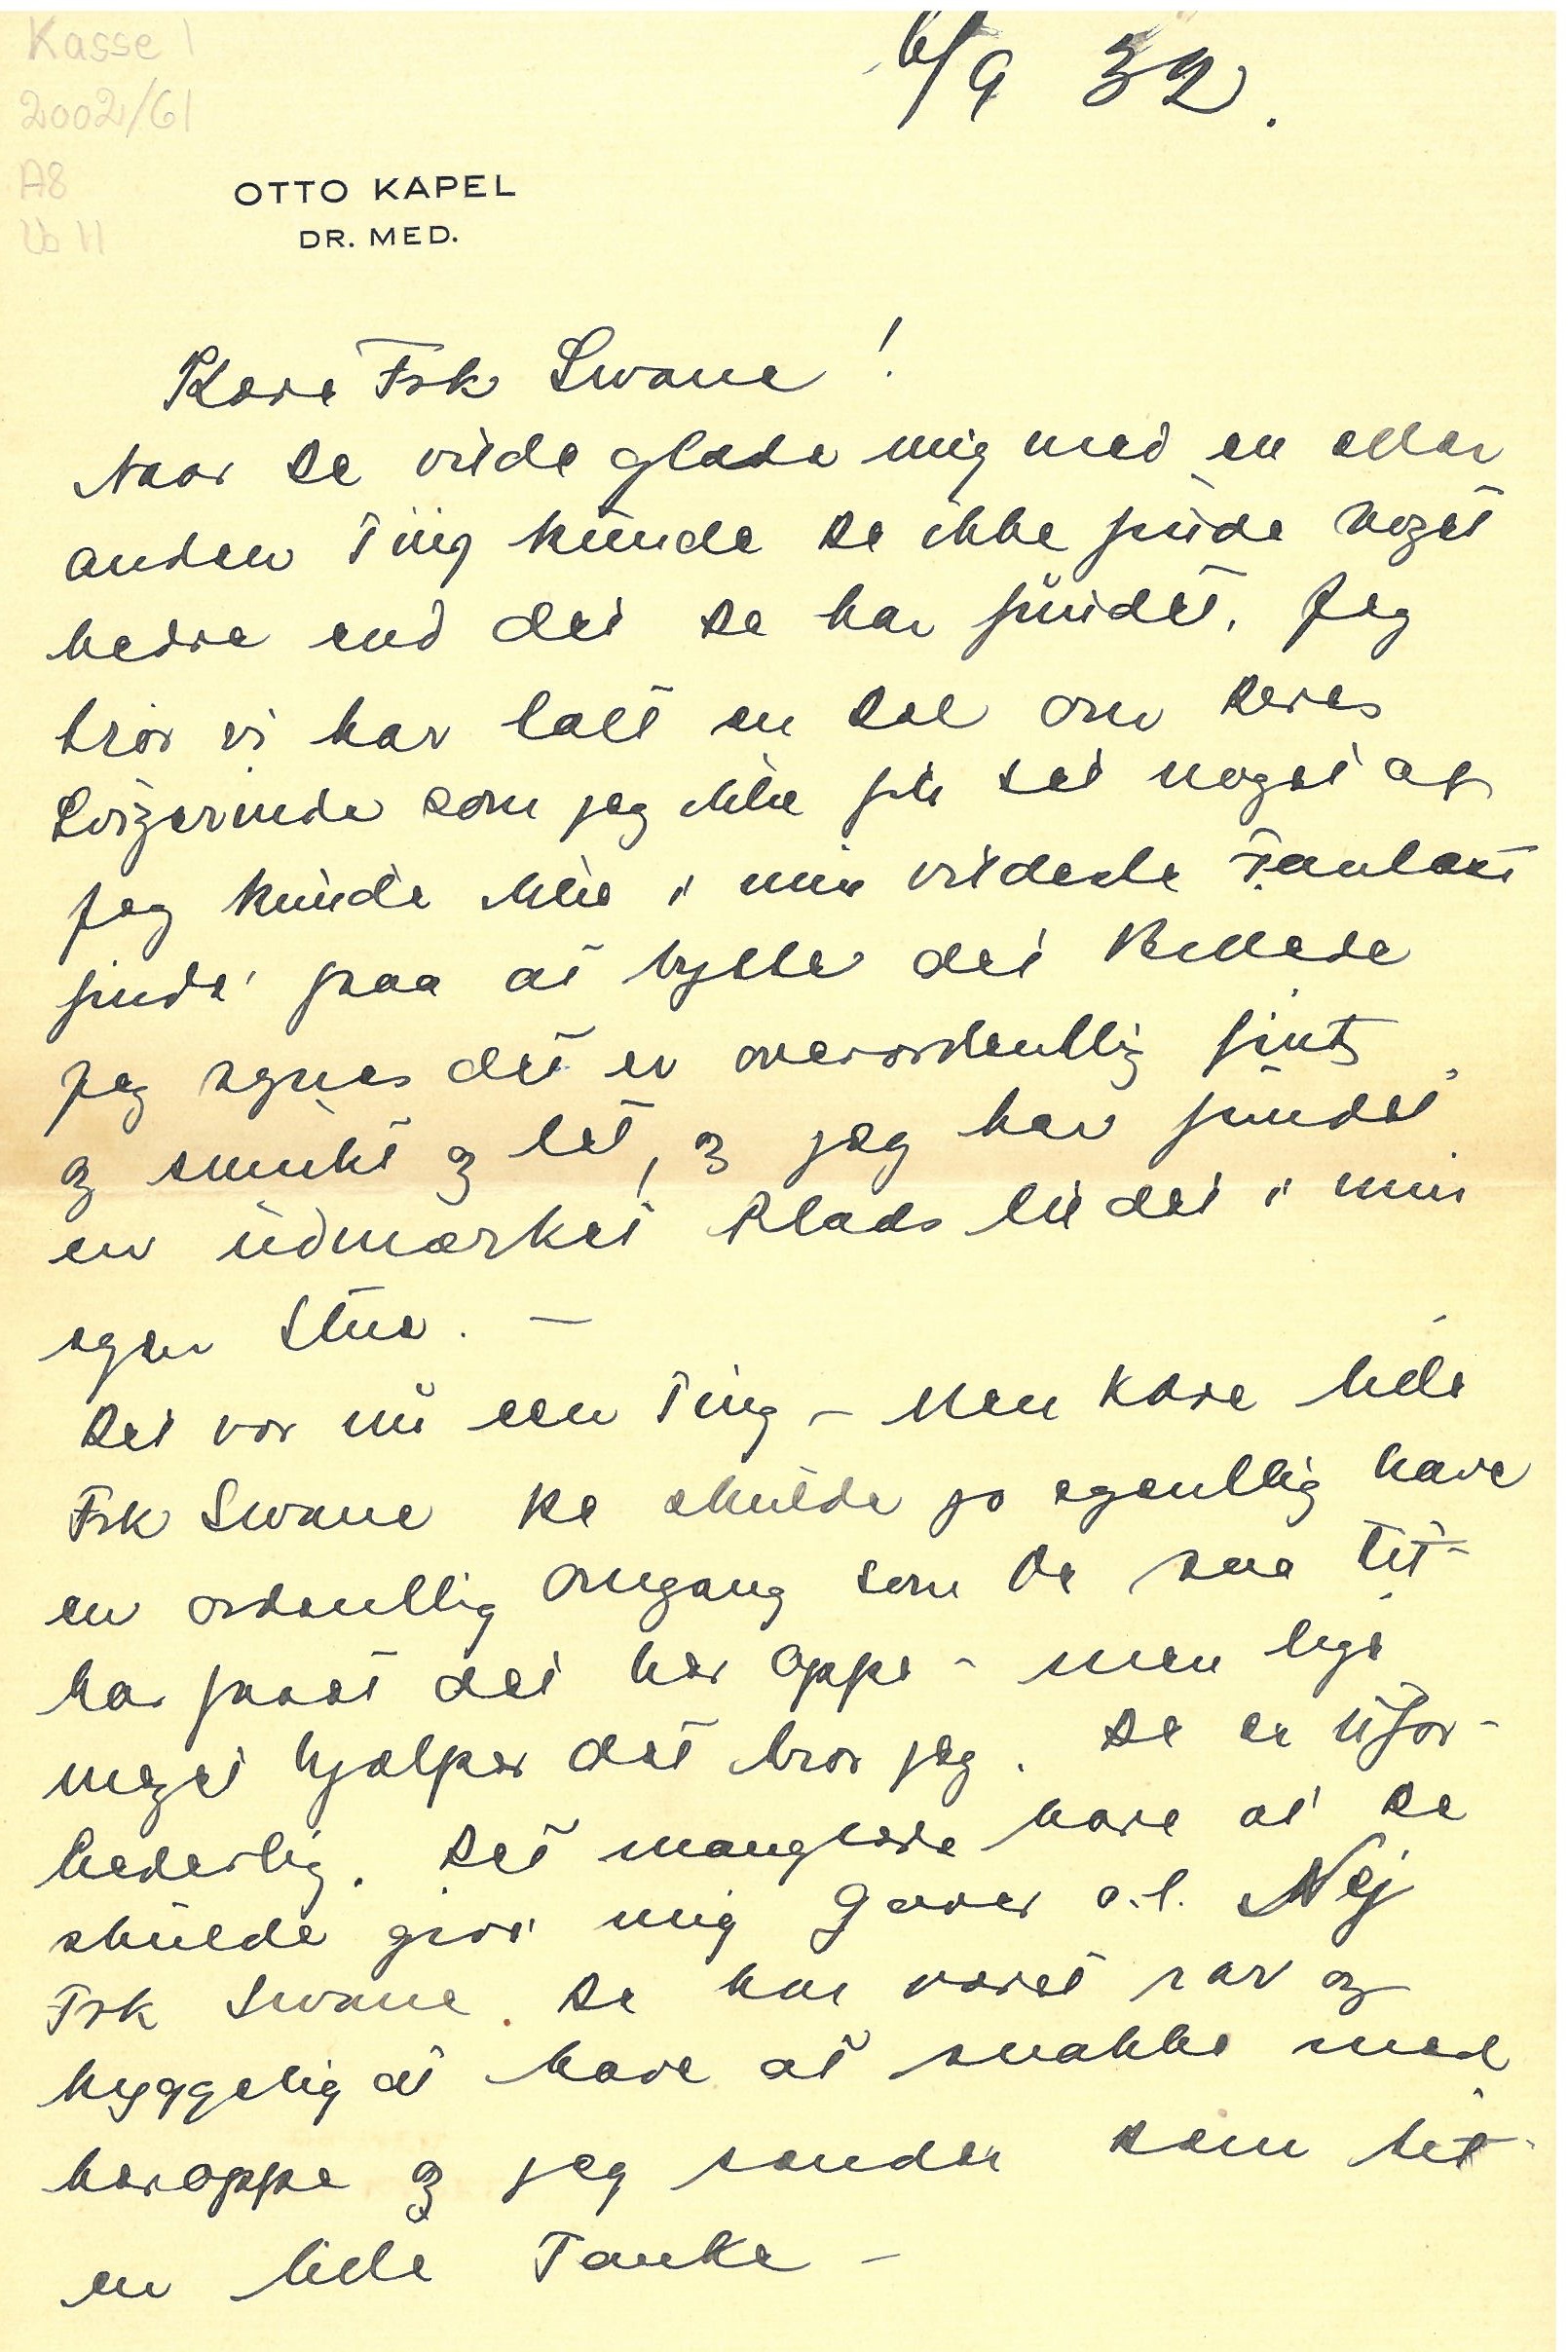 Kasse 1
2002/61
A8
Lb 11
6/9 32.
OTTO KAPEL
DR. MED.
Kære Frk Swane!
Naar De vilde glæde mig med en eller
anden Ting kunde De ikke finde noget
bedre end det De har fundet. Jeg
tror vi har talt en Del om Deres
Svigerinde som jeg ikke fik set noget af
Jeg kunde ikke i min vildeste Fantasi
finde paa at bytte det Billede
Jeg synes det er overordentlig fint,
og smukt og let, og jeg har fundet
en udmærket Plads til det i min
egen Stue. —
Det var nu een Ting — Men Kære lille
Frk Swane De skulde jo egentlig have
en ordentlig Omgang som De saa tit
har faaet det her oppe - men lige
meget hjælper det tror jeg. De er ufor-
bederlig. Det manglede bare at De
skulde give mig Gaver o.l. Nej
Frk Swane. De har været rar og
hyggelig at have at snakke med
heroppe og jeg sender Dem tit
en lille Tanke —